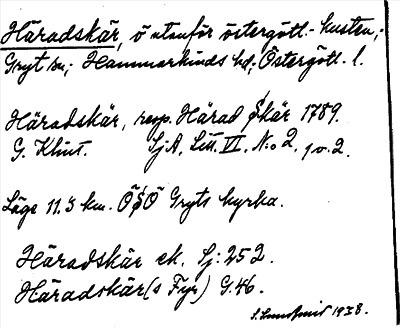 Häradskär, ö utanför östergötl.-kusten,-
Gryt sn,- Hammarkinds hd,- Östergötl. l.
Häradskär, resp. Härad Skär 1789.
G. Klint. SjA, Litt. VI. N:o 2. 1 o. 2.
Läge 11.3 km. ÖSÖ Gryts kyrka.
Häradskär ek. Sj: 252.
Häradskär(s Fyr) G.46.
1938.